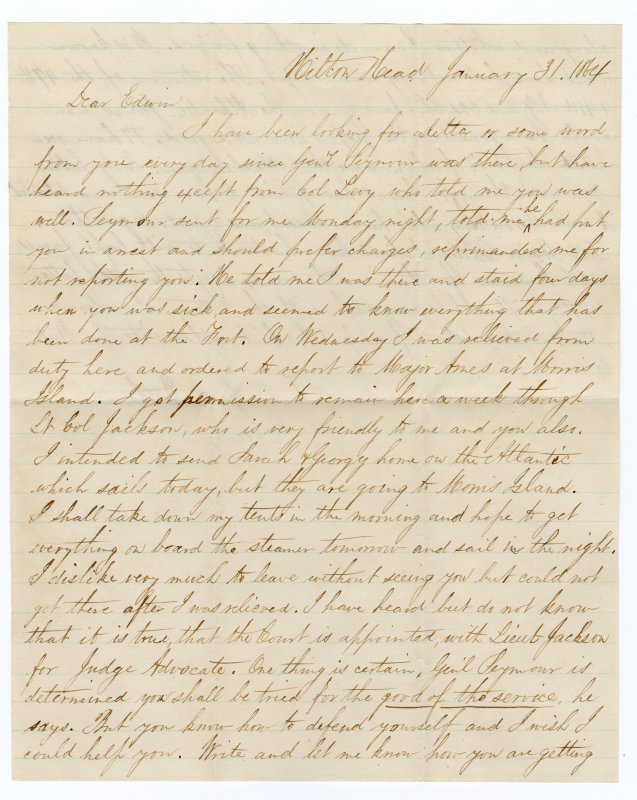 Hilton Head January 31. 1864
Dear Edwin
I have been looking for a letter or some word
from you every day since Gen'l Seymour was there, but have
heard nothing except from Col Levy who told me you was
well. Seymour sent for me Monday night, told me he had put
you in arrest and should prefer charges, reprimanded me for
not reporting you. He told me I was there and staid four days
when you was sick and seemed to know everything that has
been done at the Fort. On Wednesday I was relieved from
duty here and ordered to report to Major Ames at Morris
Island. I got permission to remain here a week through
Lt Col Jackson, who is very friendly to me and you also.
I intended to send Sarah & Georgy home on the Atlantic
which sails today, but they are going to Morris Island.
I shall take down my tents in the morning and hope to get
everything on board the steamer tomorrow and sail in the night.
I dislike very much to leave without seeing you but could not
get there after I was relieved. I have heard but do not know
that it is true, that the Court is appointed, with Lieut Jackson
for Judge Advocate. One thing is certain, Gen'l Seymour is
determined you shall be tried for the good of the service, he
says. But you know how to defend yourself and I wish I
could help you. Write and let me know how you are getting